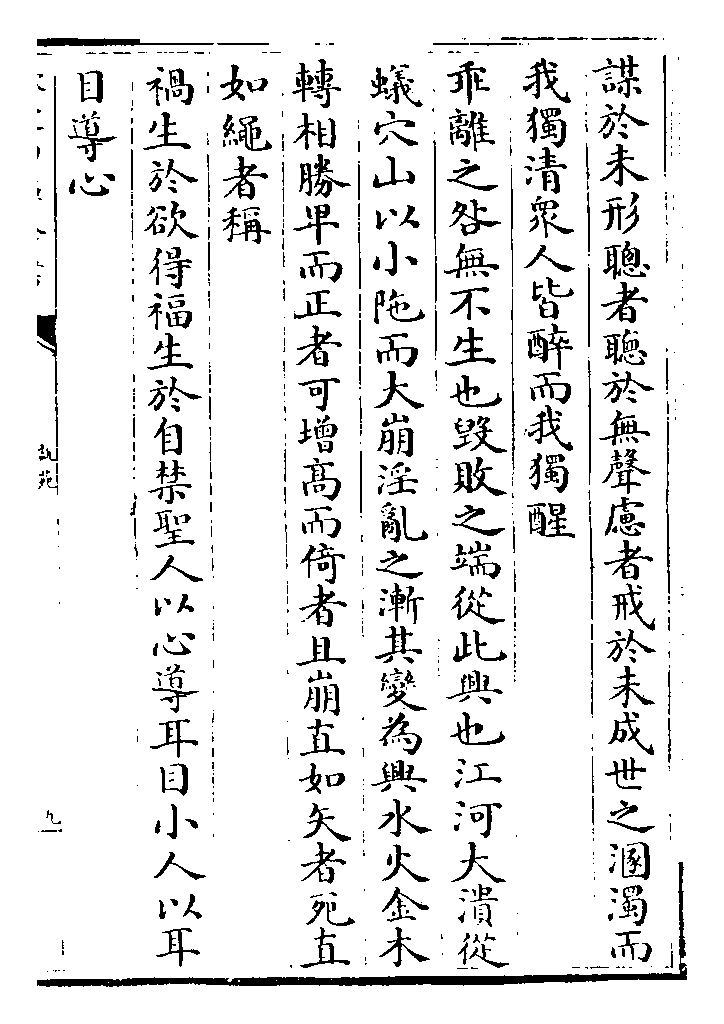 謀於未形聰者聽於無聲慮者戒於未成世之溷濁而
我獨清衆人皆醉而我獨醒
乖離之咎無不生也毀敗之端從此興也江河大潰從
蟻穴山以小陁而大崩淫亂之漸其變為興水火金木
轉相勝卑而正者可增髙而倚者且崩直如矢者死直
如繩者稱
禍生於欲得福生於自禁聖人以心導耳目小人以耳
目導心
說苑
九